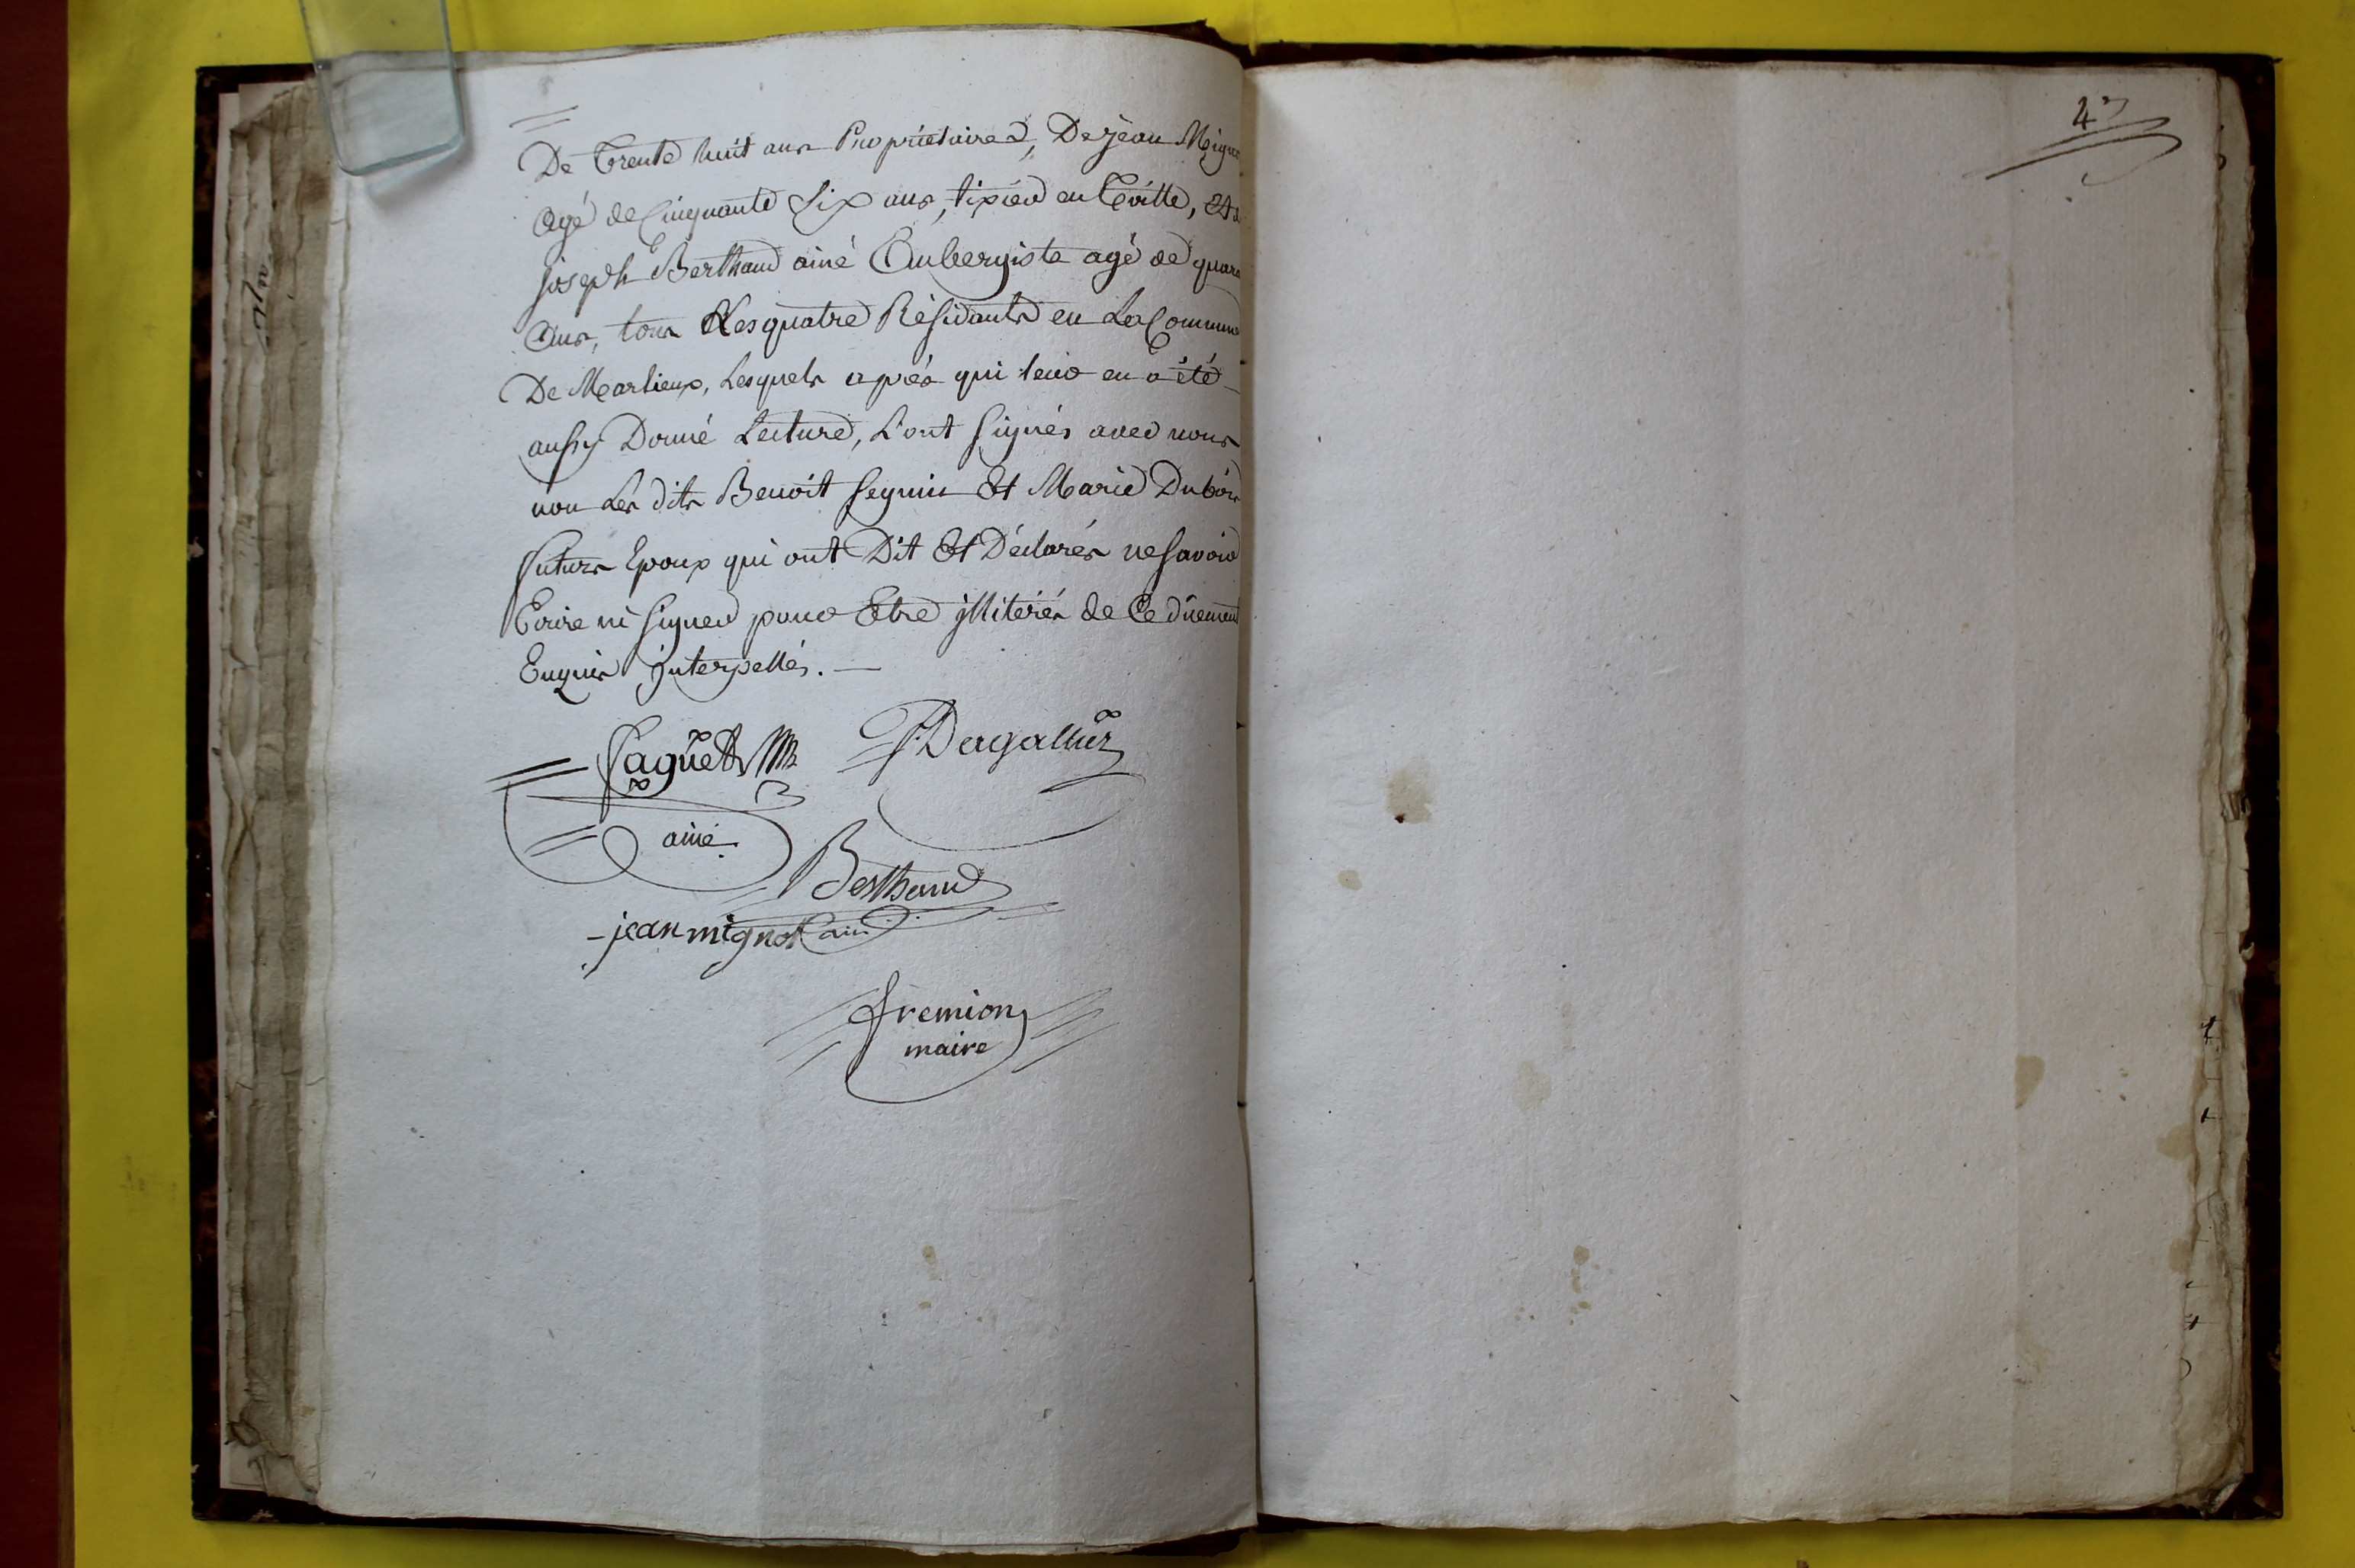 De trente huit ans Propriétaire, De jean Mign
agé de Cinquante Six ans, tixier en toille, Et
joseph Berthaud ainé Aubergiste agé de quara
ans, tous Les quatre Résidants en La Commune
De Marlieux, Lesquels après qui leur en a été
aussy Donné Lecture, L'ont signés avec nous
non Les dits Benoit Seguin Et Marie Dubois
futurs Epoux qui ont Dit Et Déclarés ne savoir
Ecrire ni signer pour Etre illiterés de Ce dûement
Enquis interpellés.
Saguet
Dagallier
ainé
Berthaud
jean mignot ainé
fremion
maire
47